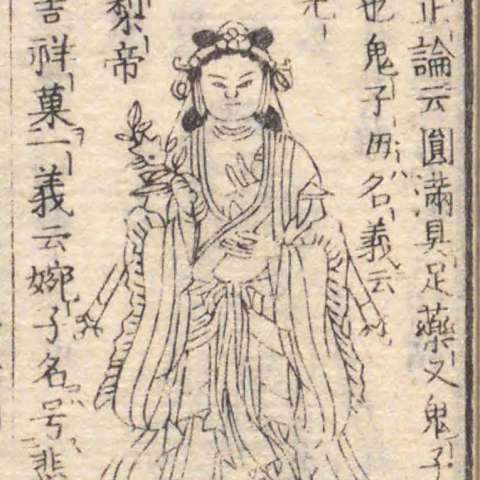 正論云圓滿具足藥叉鬼子
也鬼子母名義云
帝
吉祥菓一義云婉子名号悲